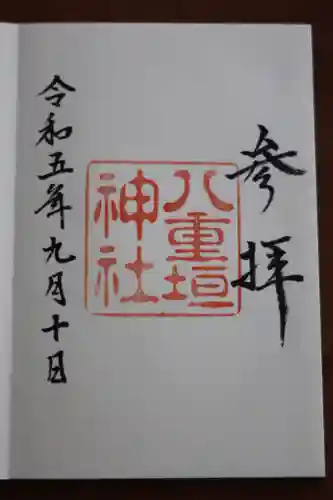 参拝
八重垣
神社
令和五年九月十日